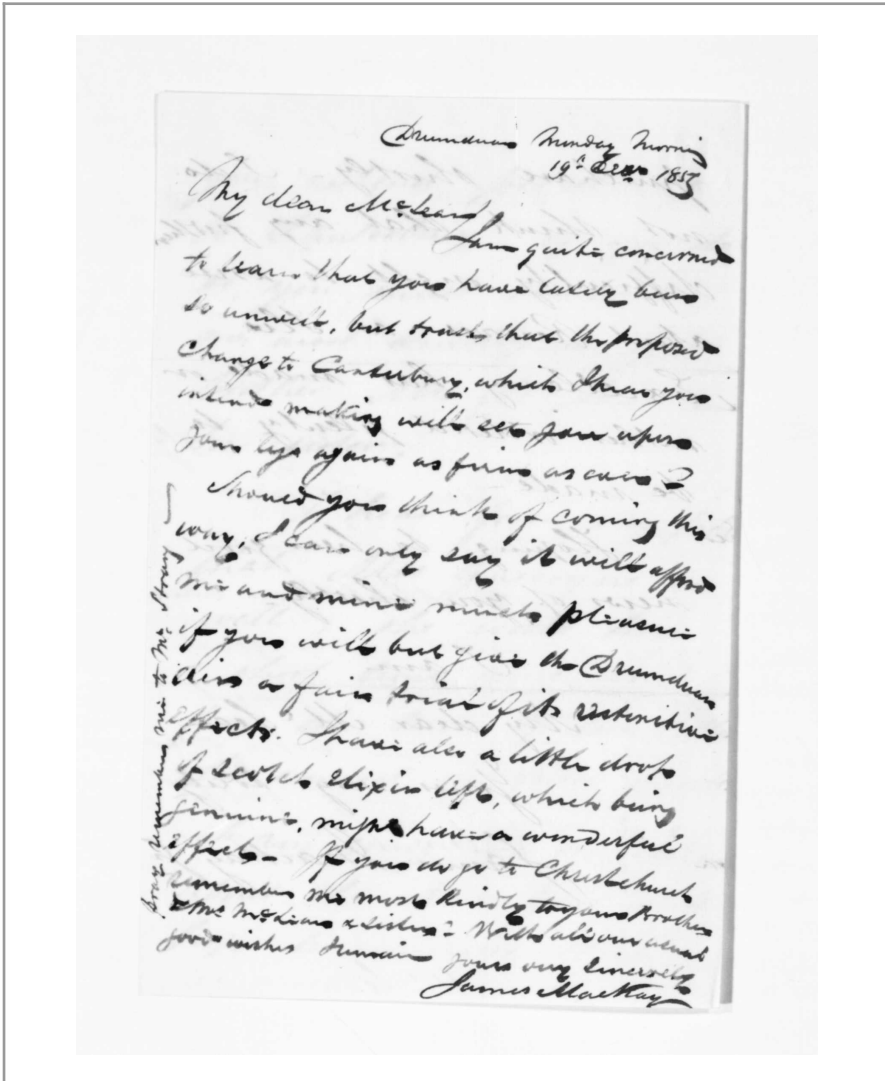 Drumduan Monday Morning
19th Decr 1853
My dear McLean
I am quite concerned
to learn that you have lately been
so unwell, but trust that the proposed
change to Canterbury, which I hear you
intend making will set you upon
your legs again as firm as ever.
Should you think of coming this
way, I can only say it will afford
me and mine much pleasure
if you will but give the Drumduan
air a fair trial of its restoritive
effects. I have also a little drop
of Scotch Elixir left, which being
genuine, might have a wonderful
effect. If you do go to Christchurch
remember me most kindly to your Brother
& Mrs McLean & sister. With all our usual
good wishes I remain yours very sincerely
James MacKay
Pray remember me to Mr Strang